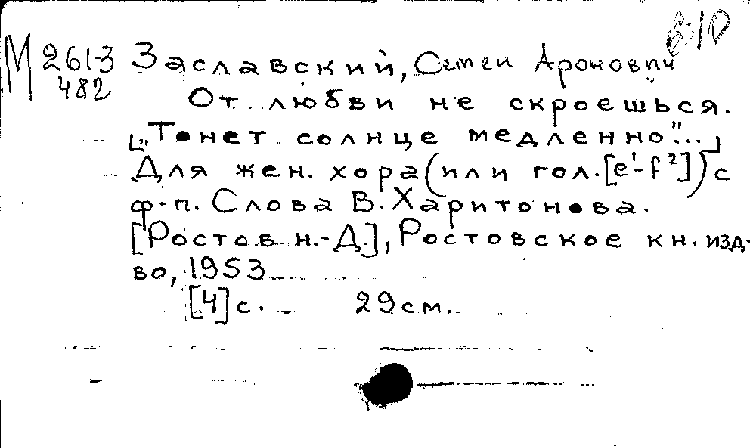 М 261-3
482
Заславский, Семен Аронович
От любви не скроешься.
[„Тонет солнце медленно"...]
Для жен. хора (или гол. [e¹-f²]) с
ф-п. Слова В. Харитонова.
[Ростов н.-Д.], Ростовское кн. изд-
во, 1953
[4] с. 29 см.